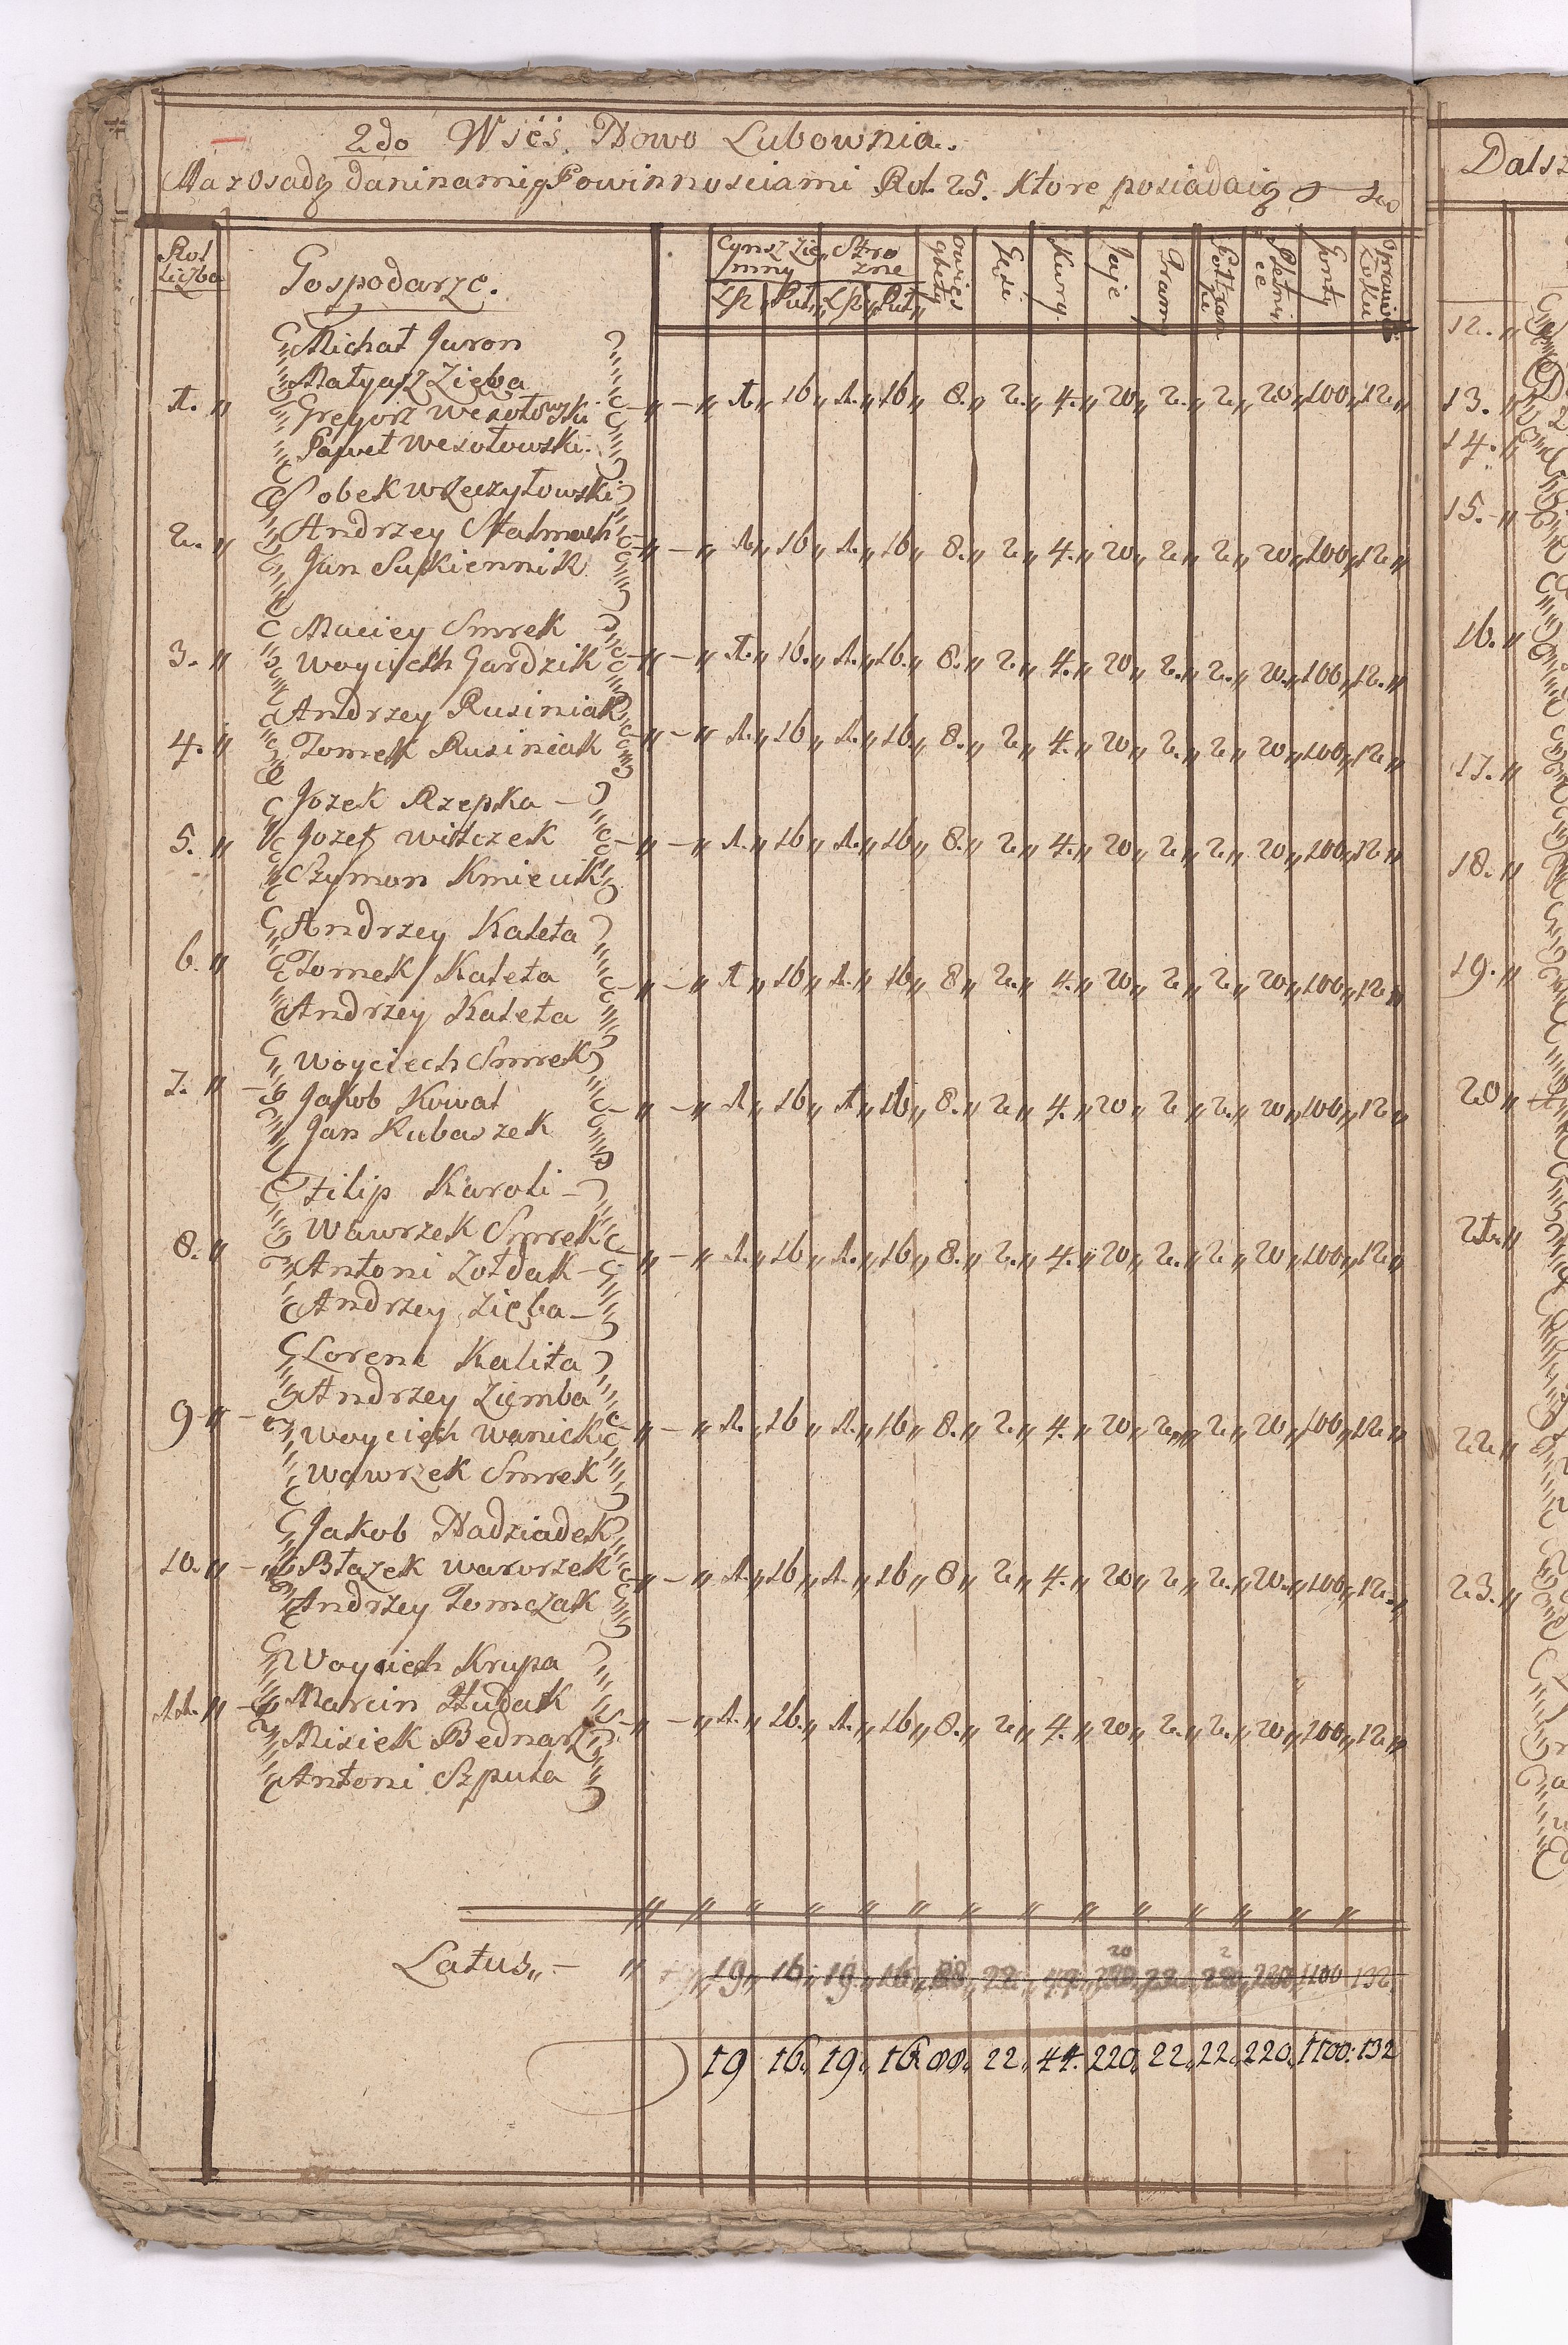 2do Wieś Nowo Lubownia.
Ma z osadą daninami y Powinnosciami Rol 25. ktore posiadaią
Rol Liczba
Gospodarze.
Cynsz Zie„mny
Stro„zne
Zł„ Pol„ Zł„ Pol„
Owies
Gęsi
Kury
Jaje
Płetnice
Gonty
Michał Juron
Matyasz Zięba
1. „ Gregorz Wesołowski „ – „ 1. „ 16 „ 1. „ 16 „ 8. „ 2. „ 4. „ 20 „ 2. „ 2. „ 20 „ 100 „ 12 „
Paweł Wesołowski.
Sobek Wrzeczytowski
Andrzey Stalmach
2. „ Jan Sukiennik „ – „ 1. „ 16 „ 1. „ 16 „ 8. „ 2. „ 4. „ 20 „ 2. „ 2. „ 20 „ 100 „ 12 „
Maciey Smrek
3. „ Woyciech Gardzik „ – „ 1. „ 16. „ 1. „ 16. „ 8. „ 2. „ 4. „ 20 „ 2. „ 2. „ 20. „ 100 „ 12. „
Andrzey Rusiniak
4. „ Tomek Rusiniak „ – „ 1. „ 16 „ 1. „ 16 „ 8. „ 2. „ 4. „ 20 „ 2. „ 2. „ 20 „ 100 „ 12 „
Jozek Rzepka –
5. „ Jozef Witczek „ – „ 1. „ 16 „ 1. „ 16 „ 8. „ 2. „ 4. „ 20 „ 2. „ 2. „ 20 „ 100 „ 12 „
Szymon Kmiecik
Andrzey Kaleta
6. „ Tomek Kaleta „ – „ 1 „ 16 „ 1. „ 16 „ 8 „ 2. „ 4. „ 20 „ 2. „ 2. „ 20 „ 100 „ 12 „
Andrzey Kaleta
Woyciech Smrek
7. „ – Jakob Kowal „ – „ 1. „ 16 „ 1 „ 16 „ 8. „ 2. „ 4. „ 20 „ 2 „ 2. „ 20 „ 100 „ 12 „
Jan Kubaszek
Filip Karoli –
Wawrzek Smrek
8. „ Antoni Zołdak – „ – „ 1. „ 16 „ 1. „ 16 „ 8. „ 2. „ 4. „ 20 „ 2. „ 2. „ 20 „ 100 „ 12 „
Andrzey Zięba –
Lorenc Kalita
Andrzey Ziemba
9 „ – Woyciech Wanicki „ – „ 1. „ 16 „ 1. „ 16 „ 8. „ 2. „ 4. „ 20 „ 2 „ 2. „ 20 „ 100 „ 12 „
Wawrzek Smrek
Jakob Nadziadek
10. „ – Błazek Wawrzek „ – „ 1. „ 16 „ 1. „ 16 „ 8 „ 2. „ 4. „ 20 „ 2 „ 2. „ 20. „ 100 „ 12. „
Andrzey Tomczak
Woyciech Krupa
11. „ – Marcin Hudak „ – „ 1. „ 16. „ 1. „ 16 „ 8. „ 2. „ 4. „ 20 „ 2. „ 2. „ 20 „ 100 „ 12 „
Misiek Bednarz
Antoni Szpula
Latus „ – „ 19 „ 16 „ 19 „ 16 „ 88 „ 22 „ 44 „ 220 „ 22 „ 22 „ 220 „ 1100 „ 132
19 16. 19. 16 88. 22. 44. 220. 22. 22. 220. 1100. 132
Dalsz
12. „
13. „
14. „
15. „
16. „
17. „
18. „
19. „
20 „
21. „
22. „
23. „